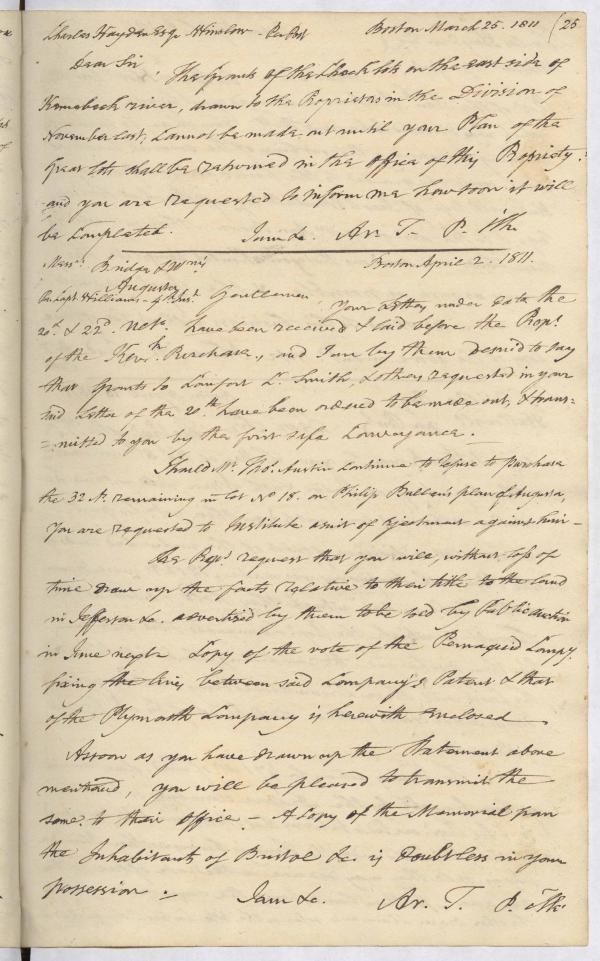 Charles Hayden Esqr Winslow - Per Post Boston March 25. 1811 (25
Dear Sir The Grants of the back lots on the east side of
Kennebeck river, drawn to the Proprietors in the Division of
November last, cannot be made out until your Plan of the
Great lots shall be returned in the office of this Propriety.
and you are requested to inform me how soon it will
be Completed. I am &c. Ar T- P. Clk.
Messrs. Bridge & Wms Boston April 2. 1811.
Augusta
Per Capt. Williams - 4th Inst. Gentlemen, Your Letters under date the
20th & 22d. Ulto. have been received & laid before the Proprs.
of the Kenk. Purchase, and I am by them Desired to say
that Grants to Comfort C. Smith, & others requested in your
said Letter of the 20th. have been ordered to be made out, & trans=
=mitted to you by the first safe Conveyance.
Should Mr. Thos. Austin Continue to refuse to purchase
the 32 As. remaining in lot No 18. on Philip Bullen's plan of Augusta,
You are requested to Institute a suit of Ejectment against him -
The Proprs. request that you will, without loss of
time draw up the facts relative to their title to the land
in Jefferson &c. advertised by them to be sold by Public Auction
in June next. Copy of the vote of the Pemaquid Compy.
fixing the lines between said Company's Patent & that
of the Plymouth Company is herewith enclosed
As soon as you have drawn up the Statement above
mentioned, you will be pleased to transmit the
same to their office - A Copy of the Memorial from
the Inhabitants of Bristol &c. is doubtless in your
possession. - I am &c. Ar. T. P. Clk.